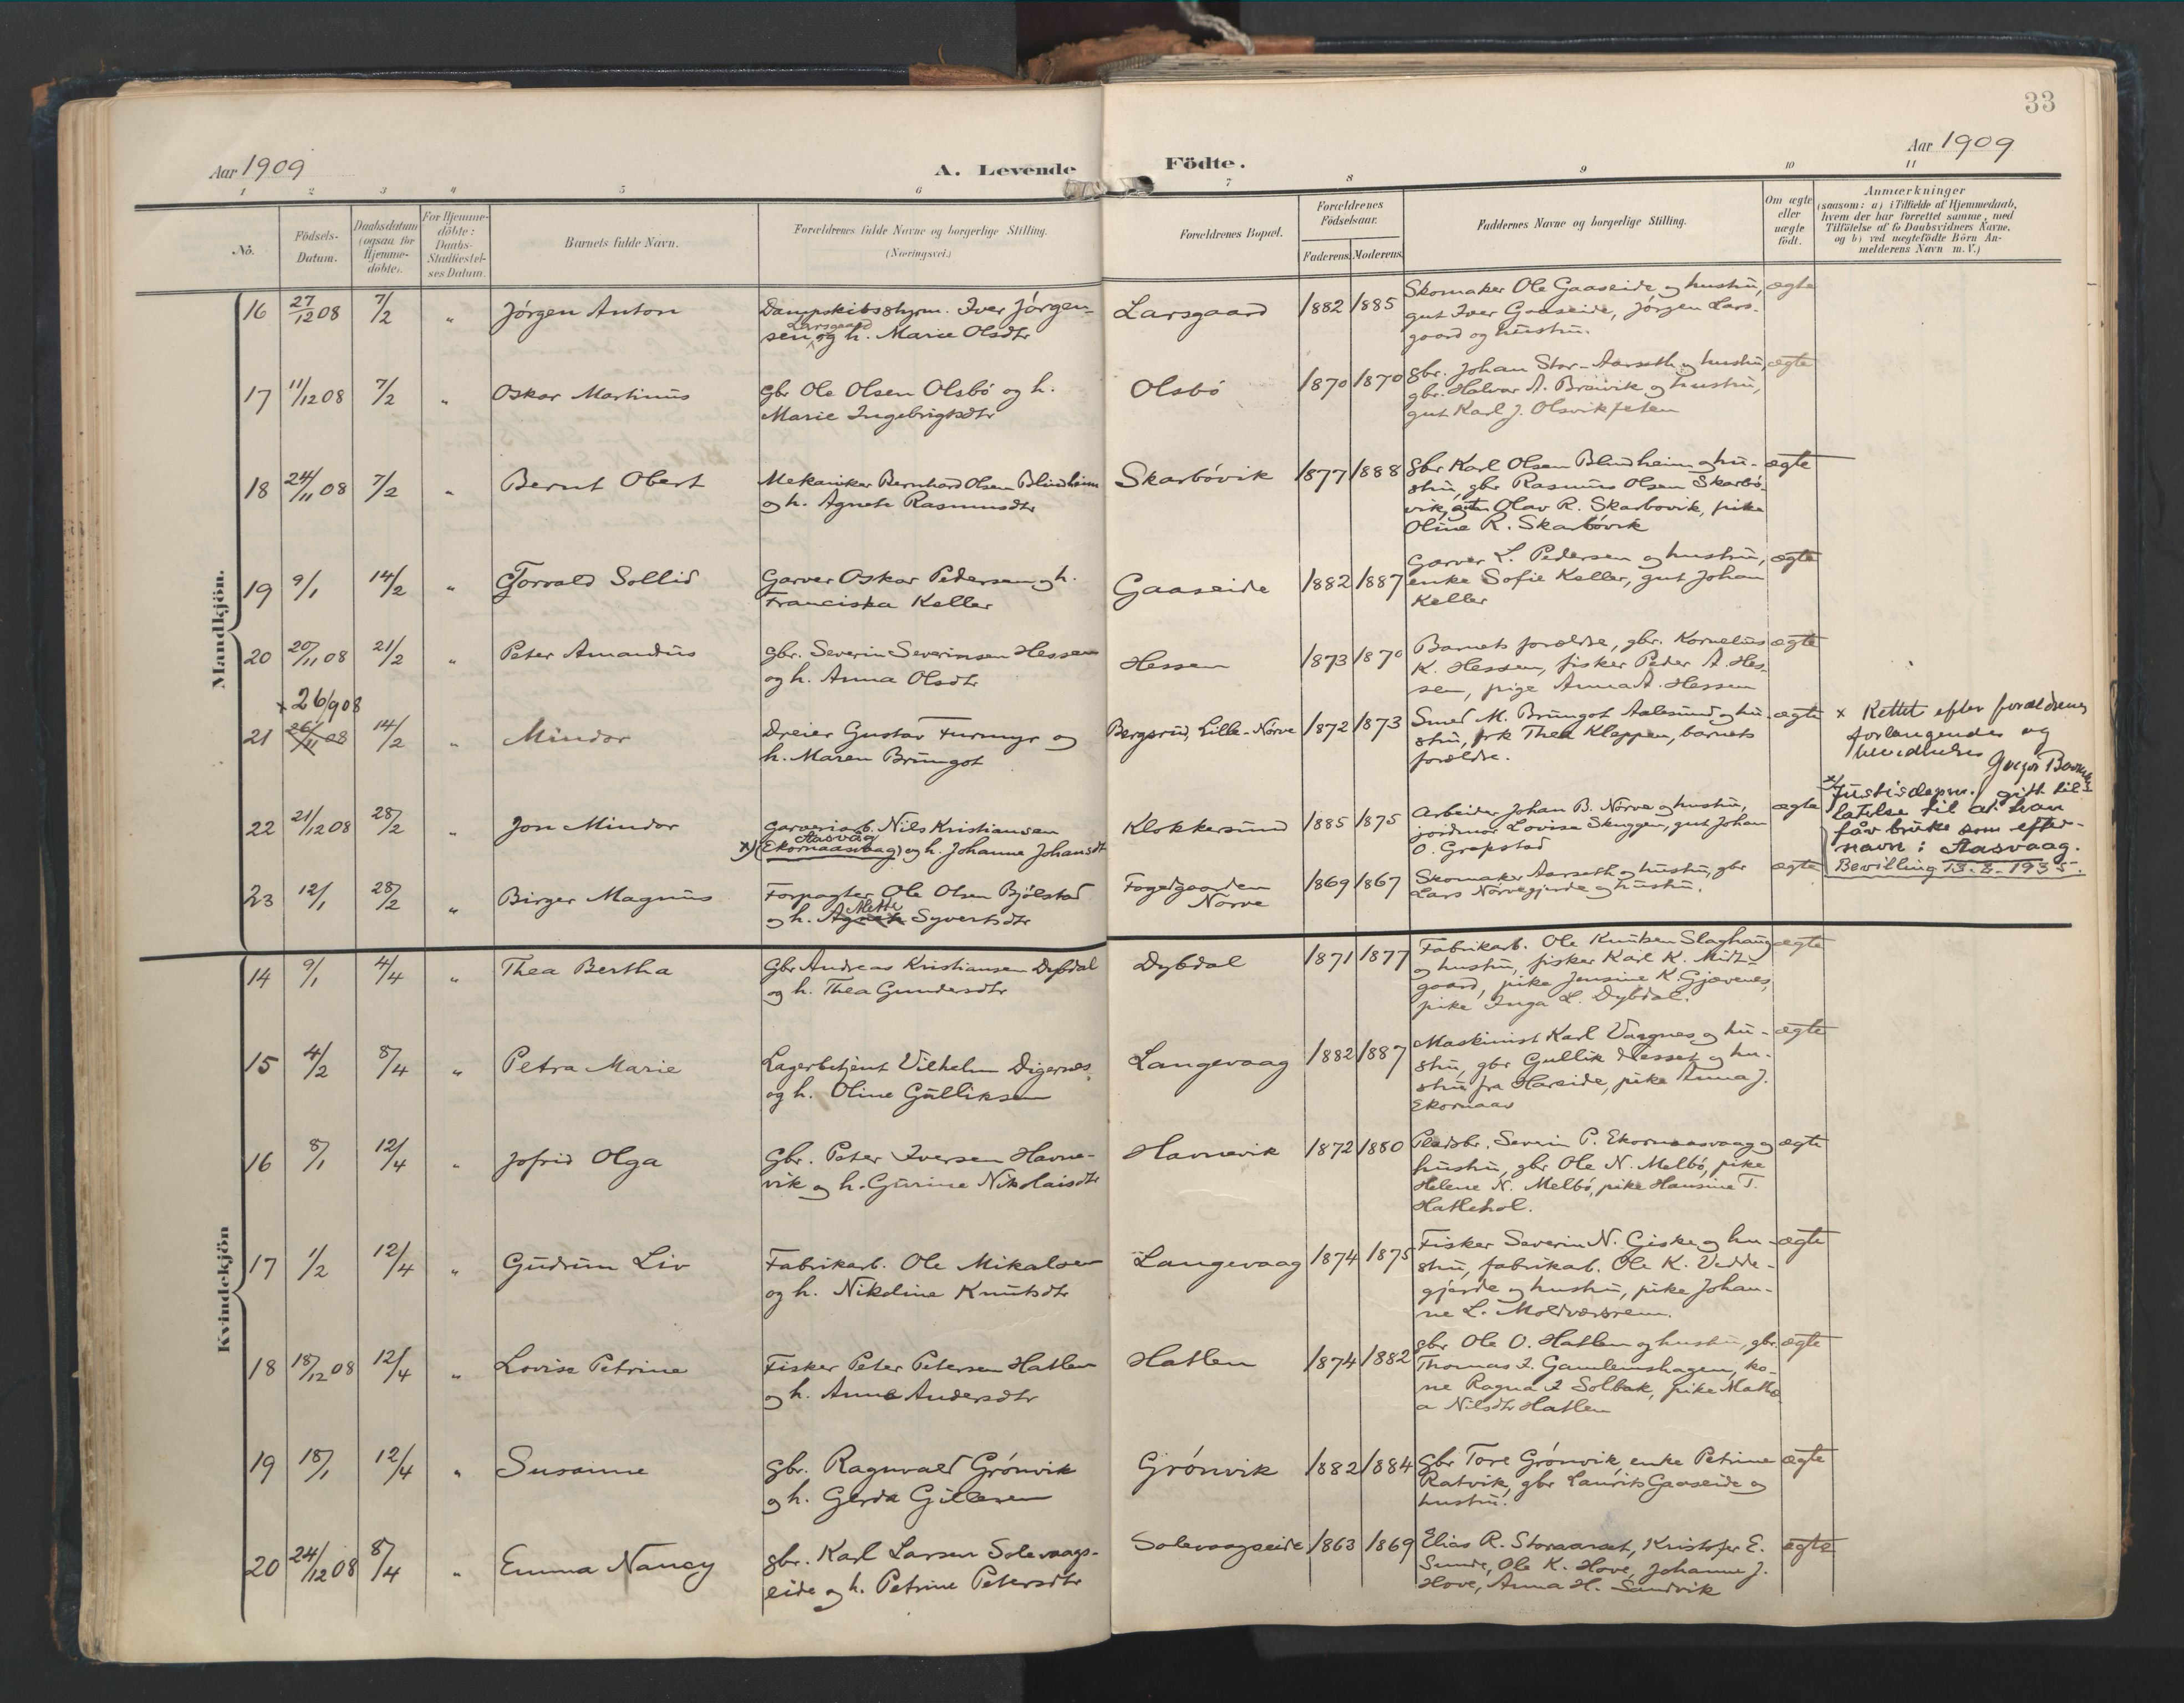 33
Aar 1909
A. Levende Födte.
Aar 1909
1 2 3 4 5 6 7 8 9 10 11
No.
Födsels-
Datum.
Daabsdatum
(ogsaa for
Hjemme-
döbte).
For Hjemme-
döbte:
Daabs-
Stadfæstel-
ses Datum.
Barnets fulde Navn.
Forældrenes fulde Navne og borgerlige Stilling.
(Næringsvei.)
Forældrenes Bopæl.
Forældrenes
Födselsaar.
Faderens. Moderens.
Faddernes Navne og borgerlige Stilling.
Om ægte
eller
uægte
födt.
Anmærkninger
(saasom: a) i Tilfælde af Hjemmedaab,
hvem der har forrettet samme, med
Tilföielse af to Daabsvidners Navne,
og b) ved uægtefödte Börn An-
melderens Navn m. V.)
Mandkjön.
16 27/12 08 7/2 " Jörgen Anton
Dampskibsstyrm. Iver Jörgen-
Larsgaard
sen, og h. Marie Olsdtr
Larsgaard 1882 1885
Skomaker Ole Gaaseide og hustru,
gut Iver Gaaseide, Jörgen Lars-
gaard og hustru.
ægte
17 11/12 08 7/2 " Oskar Martinus
gbr Ole Olsen Olsbö og h.
Marie Ingebrigtsdtr
Olsbö 1870 1870
gbr. Johan Stor-Aarseth og hustru,
gbr. Halvor A. Breivik og hustru,
gut Karl J. Olsvikfeten
ægte
18 24/11 08 7/2 " Bernt Obert
Mekaniker Bernhard Olsen Blindheim
og h. Agnete Rasmusdtr
Skarbövik 1877 1888
gbr Karl Olsen Blindheim og hu-
stru, gbr Rasmus Olsen Skarbö-
vik, gut Olav R. Skarbovik, pike
Oline R. Skarbövik
ægte
19 9/1 14/2 " Torvald Sollid
Garver Oskar Pedersen og h.
Franciska Keller
Gaaseide 1882 1887
Garver L. Pedersen og hustru,
enke Sofie Keller, gut Johan
Keller
ægte
20 20/11 08 21/2 " Peter Amandus
gbr. Severin Severinsen Hessen
og h. Anna Olsdtr
Hessen 1873 1870
Barnets forældre, gbr. Kornelius
K. Hessen, fisker Peder A. Hes-
sen, pige Anna A. Hessen
ægte
x 26/9 08
21 26/11 08 14/2 " Mindor
Dreier Gustav Furmyr og
h. Maren Brungot
Bergsrud, Lille-Nörve 1872 1873
Smed M. Brungot Aalesund og hu-
stru, frk Thea Kleppen, barnets
forældre.
ægte
x Rettet efter forældrenes
forlangende og

22 21/12 08 28/2 " Jon Mindor
Garveriarb. Nils Kristiansen
Aasvåg
x) (Ekornaasvaag) og h. Johanne Johansdt
Klokkersund 1885 1875
Arbeider Johan B. Nörve og hustru,
jordmor Lovise Skuggen, gut Johan
O. Grapstad
ægte
x) Justisdepm. gitt til-
latelse til at han
får bruke som efter-
navn: Aasvaag.
Bevilling 13-8-1935.
23 12/1 28/2 " Birger Magnus
Forpagter Ole Olsen Bjölstad
Mette
og h. Agnete Syvertsdtr
Fogedgaarden
Nörve
1869 1867
Skomaker Aarseth og hustru, gbr
Lars Nörvegjerde og hustru.
ægte
Kvindekjön
14 9/1 4/4 " Thea Bertha
Gbr Andreas Kristiansen Dybdal
og h. Thea Gundersdtr
Dybdal 1871 1877
Fabrikarb. Ole Knutsen Slaghaug
og hustru, fisker Karl K. Midt-
gaard, pike Jensine K. Gjævenes,
pike Inga L. Dybdal.
ægte
15 4/2 8/4 " Petra Marie
Lagerbetjent Vilhelm Digernes
og h. Oline Gulliksen
Langevaag 1882 1887
Maskinist Karl Vaagnes og hu-
stru, gbr Gullik Nesset og hu-
stru fra Hareide, pike Anna J.
Ekornaas
ægte
16 8/1 12/4 " Jofrid Olga
Gbr. Peter Iversen Havne-
vik og h. Gurine Nikolaisdtr
Havnevik 1872 1880
Pladsbr. Severin P. Ekornaasvaag og
hustru, gbr Ole N. Melbö, pike
Helene N. Melbö, pike Hansine T.
Hatlehol.
ægte
17 1/2 12/4 " Gudrun Liv
Fabrikarb. Ole Mikalsen
og h. Nikoline Knutsdtr
Langevaag 1874 1875
Fisker Severin N. Giske og hu-
stru, fabrikarb. Ole K. Vedde-
gjerde og hustru, pike Johan-
ne L. Moldværsrem.
ægte
18 18/12 08 12/4 " Lovise Petrine
Fisker Peter Petersen Hatlen
og h. Anne Andersdtr
Hatlen 1874 1882
gbr Ole O. Hatlen og hustru, gbr
Thomas I. Gamlemshagen, ko-
ne Ragna I Solbak, pike Math-
a Nilsdtr Hatlen
ægte
19 18/1 12/4 " Susanne
gbr. Ragnvald Grönvik
og h. Gerda Gillesen
Grönvik 1882 1884
gbr Tore Grönvik, enke Petrine
Ratvik, gbr Laurits Gaaseide og
hustru.
ægte
20 24/12 08 8/4 " Emma Nancy
gbr. Karl Larsen Solevaags-
eide og h. Petrine Petersdtr
Solevaagseide 1863 1869
Elias R. Storaaraat, Kristofer E.
Sunde, Ole K. Hove, Johanne J.
Hove, Anna H. Sandvik
ægte